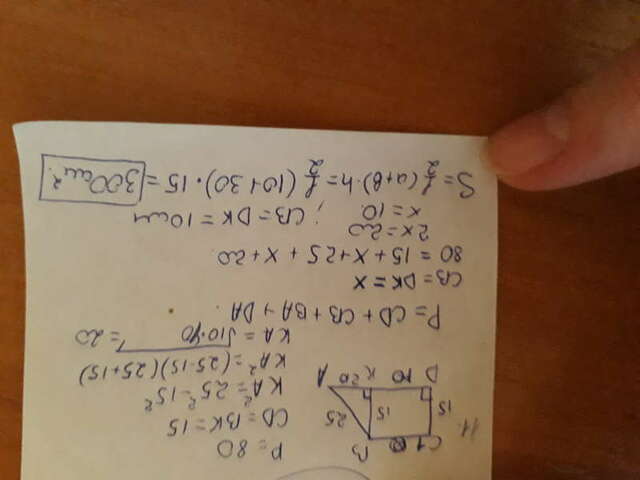 11.
C 10 B
15
15
25
D 10 K 20 A
P = 80
CD = BK = 15
KA² = 25² - 15²
KA² = (25-15)(25+15)
KA = √10·40 = 20
P = CD + CB + BA + DA.
CB = DK = x
80 = 15 + x + 25 + x + 20.
2x = 20
x = 10. ; CB = DK = 10см
S = 1/2 (a+b)·h = 1/2 (10+30)·15 = 300см².